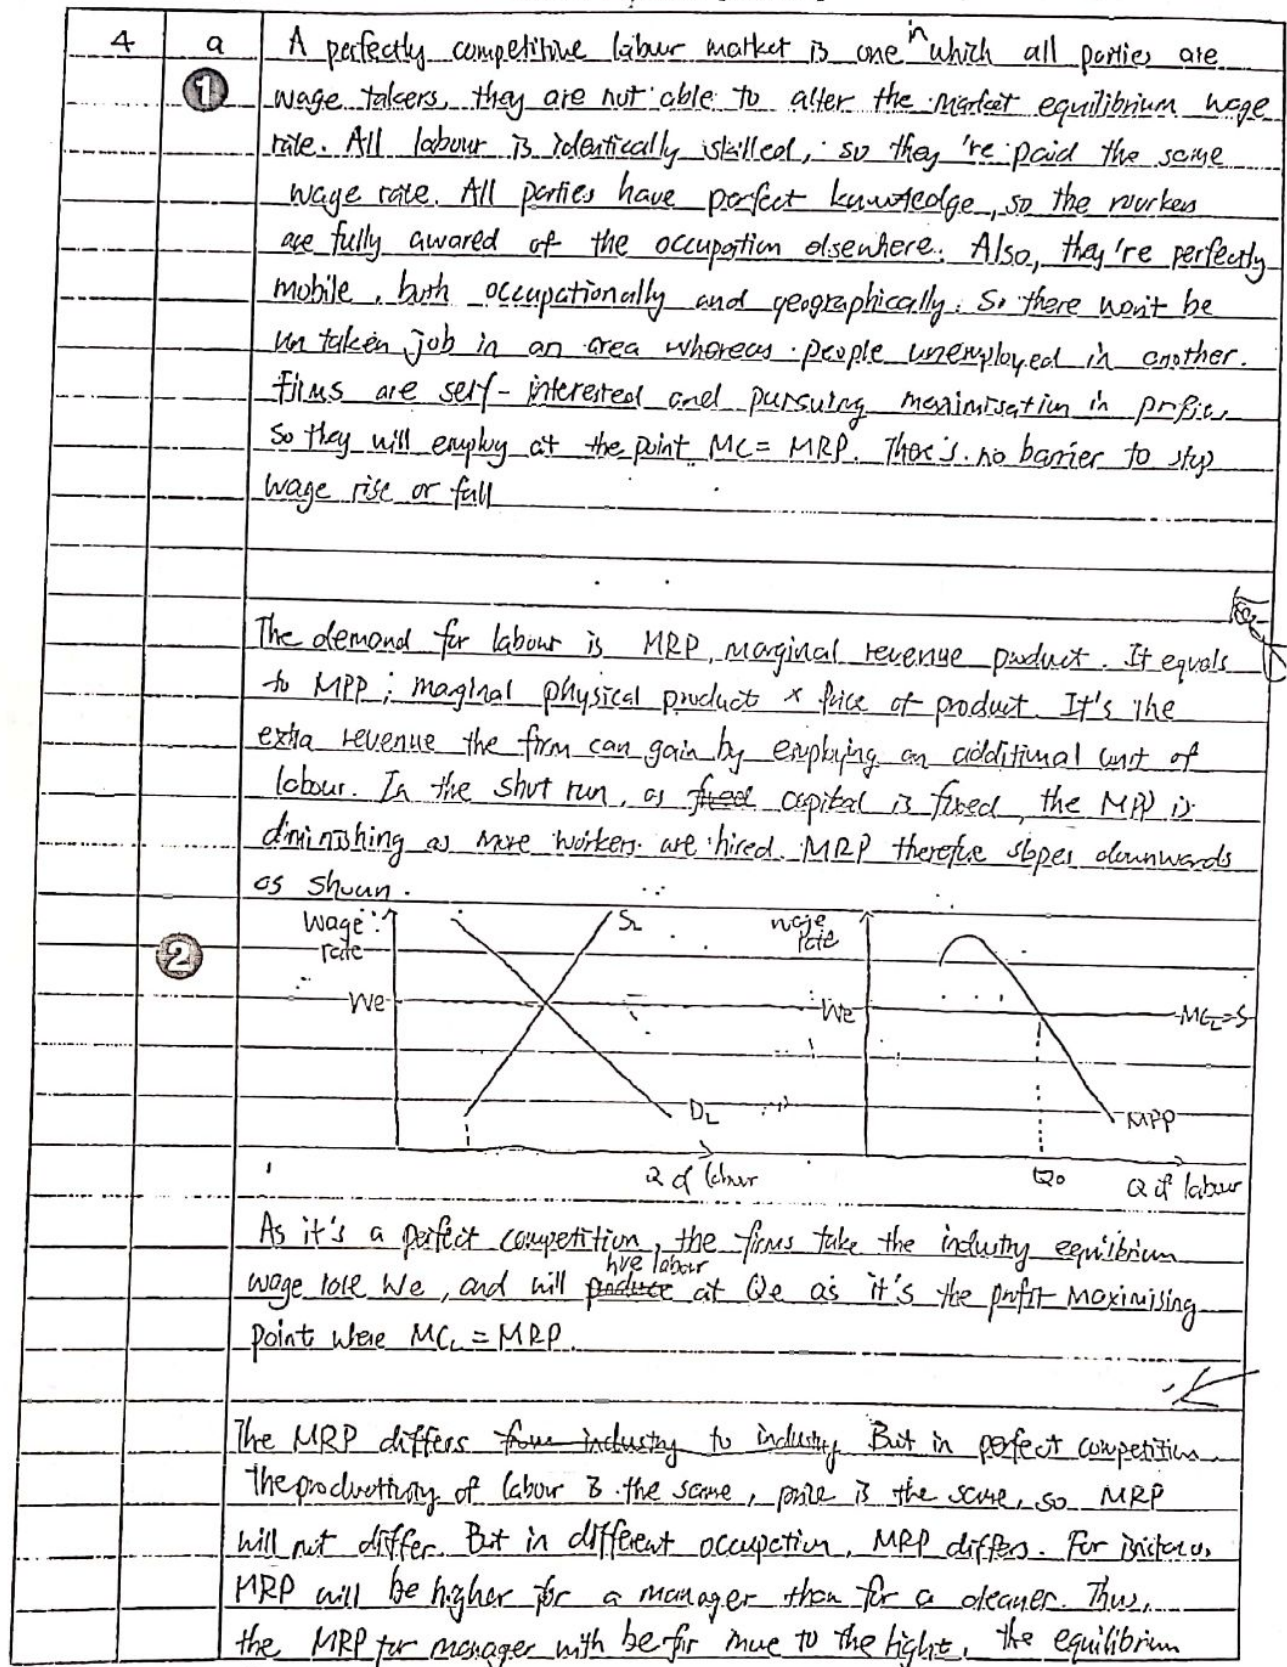 4 a A perfectly competitive labour market is one in which all parties are
1 wage takers, they are not able to alter the market equilibrium wage
rate. All labour is identically skilled, so they're paid the same
wage rate. All parties have perfect knowledge, so the workers
are fully awared of the occupation elsewhere. Also, they're perfectly
mobile, both occupationally and geographically. So there won't be
untaken job in an area whereas people unemployed in another.
Firms are self-interested and pursuing maximisation in profit,
so they will employ at the point MC = MRP. There's no barrier to stop
wage rise or fall
The demand for labour is MRP, marginal revenue product. It equals
to MPP; marginal physical product x price of product. It's the
extra revenue the firm can gain by employing an additional unit of
labour. In the short run, as fixed capital is fixed, the MPP is
diminishing as more workers are hired. MRP therefore slopes downwards
as shown.
2
Wage rate
SL
We
DL
Q of labour
wage rate
We
MCL=S
MPP
Q0
Q of labour
As it's a perfect competition, the firms take the industry equilibrium
wage rate We, and will produce hire labour at Qe as it's the profit maximising
point were MCL = MRP.
The MRP differs from industry to industry But in perfect competition
the productivity of labour is the same, price is the same, so MRP
will not differ. But in different occupation, MRP differs. For instance,
MRP will be higher for a manager than for a cleaner. Thus,
the MRP for manager with be far more to the right, the equilibrium